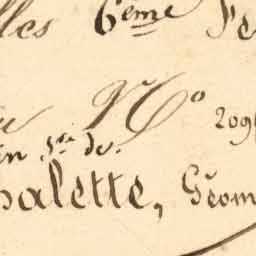 lles 6eme Fe
u No 209
in de
alette, Géom